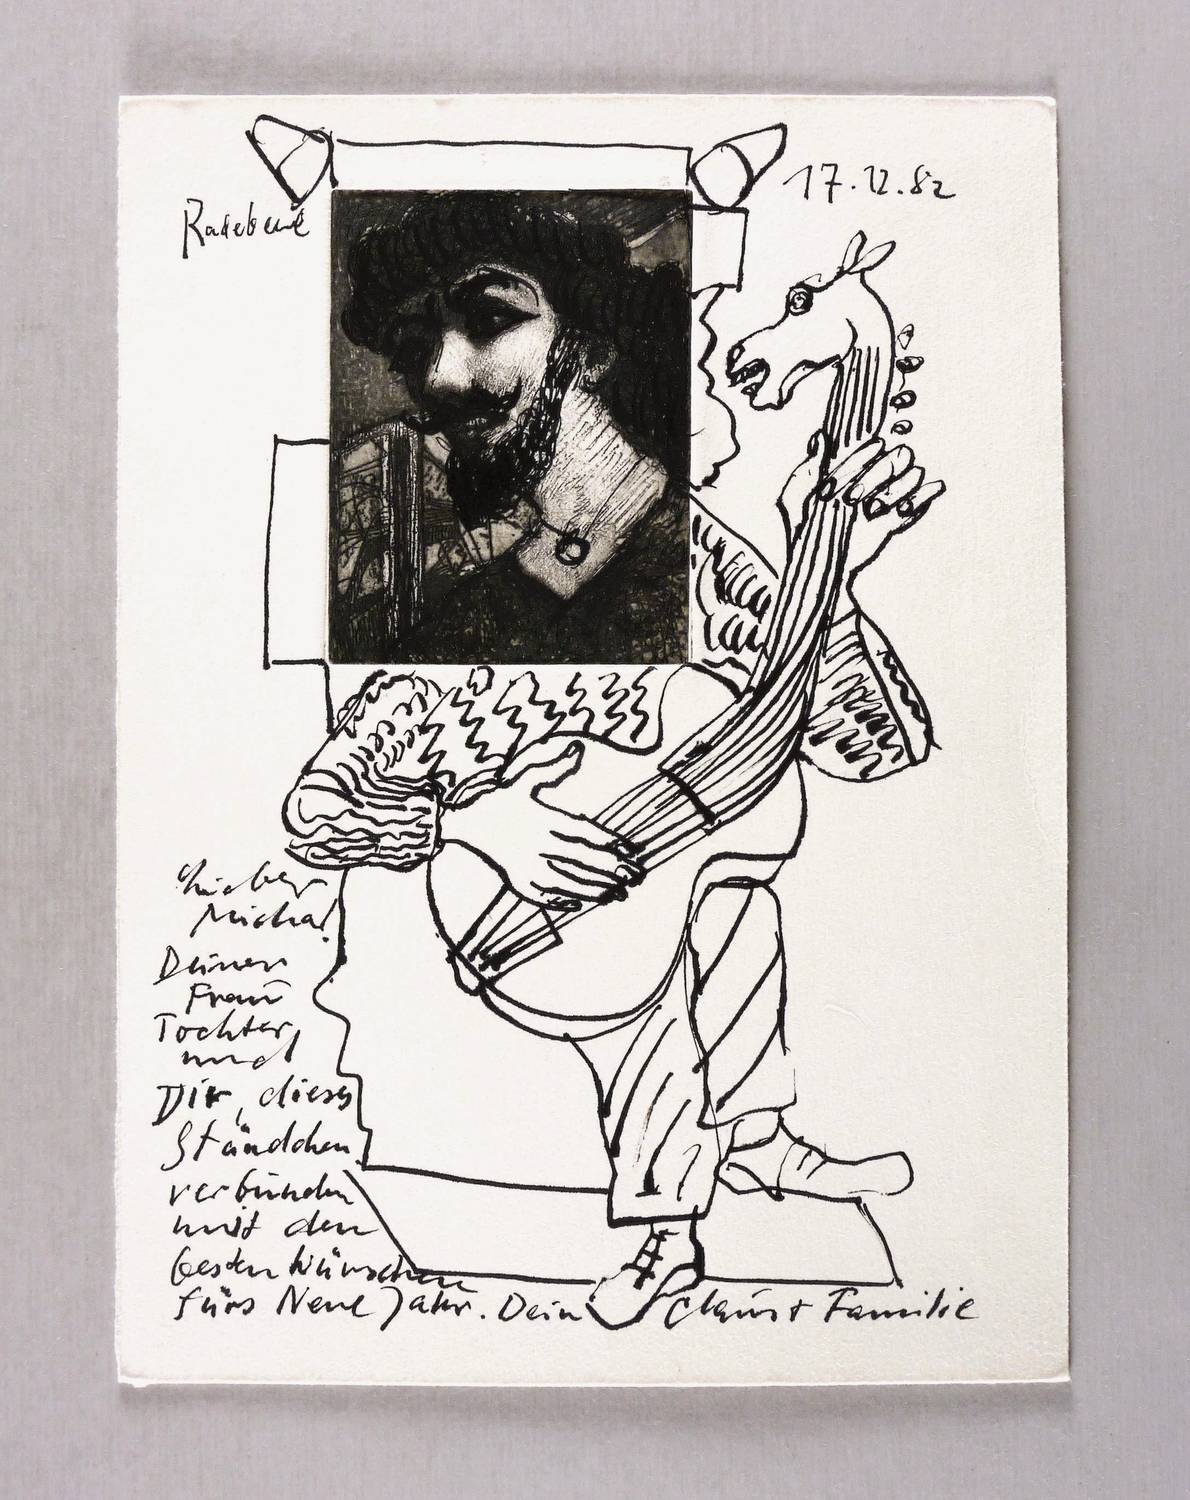 Radebeul
17.12.82
Lieber
Micha!
Deiner
Frau
Tochter
und
Dir, dieses
Ständchen
verbunden
mit den
besten Wünschen
fürs Neue Jahr. Dein Claus + Familie